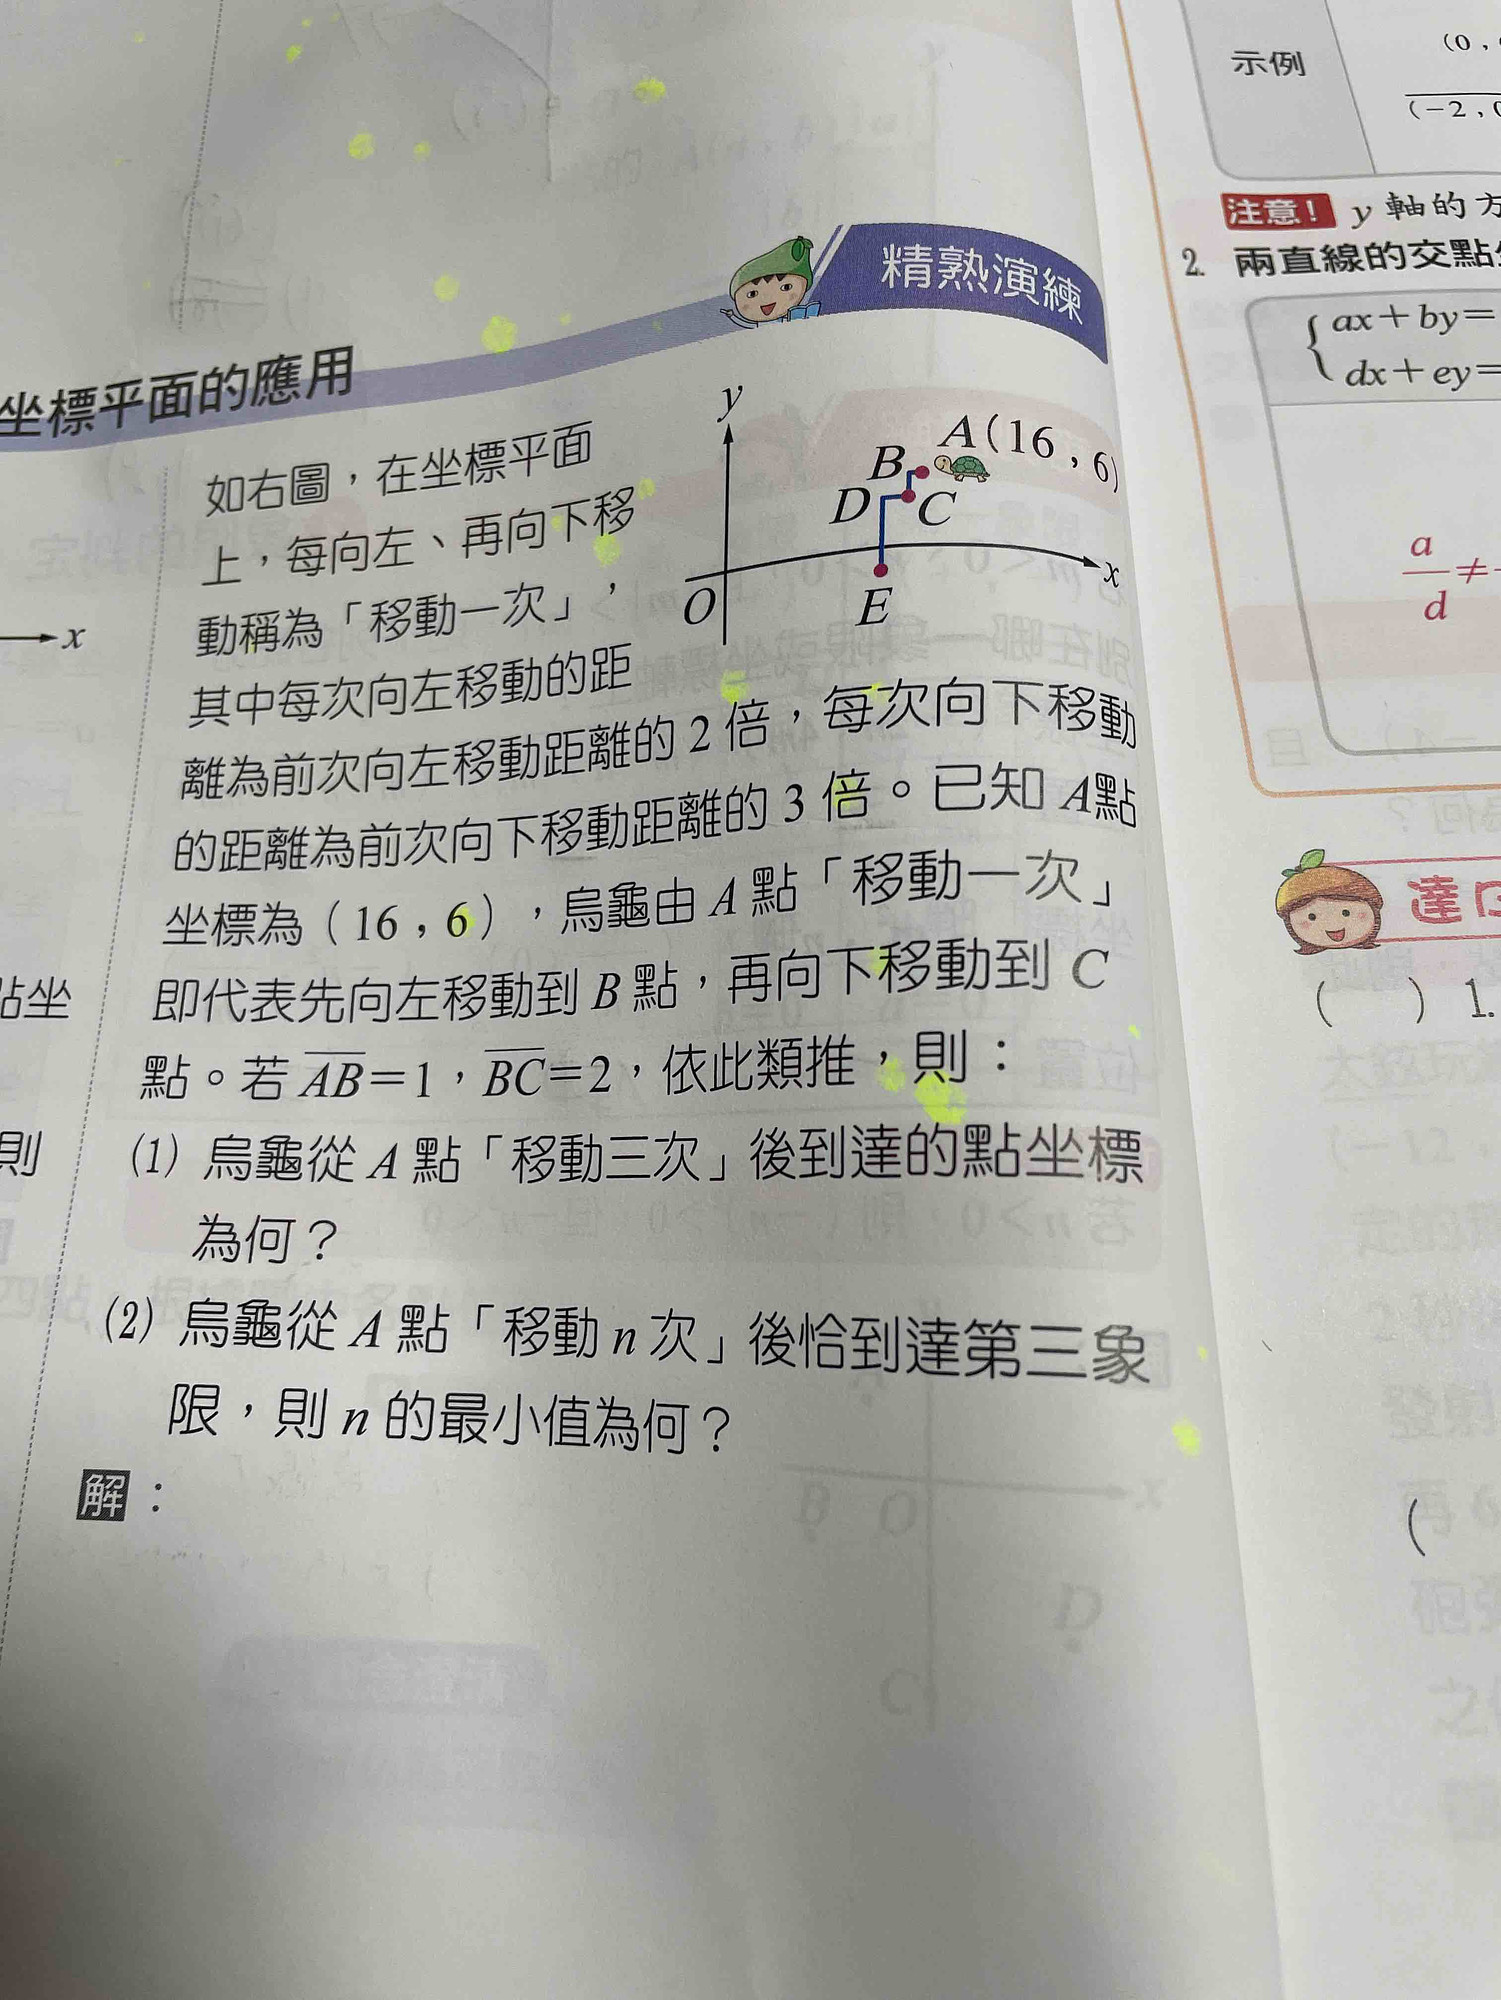 精熟演練
坐標平面的應用
如右圖，在坐標平面
上，每向左、再向下移
動稱為「移動一次」，
其中每次向左移動的距
離為前次向左移動距離的 2 倍，每次向下移動
的距離為前次向下移動距離的 3 倍。已知 A點
坐標為（16，6），烏龜由 A 點「移動一次」
即代表先向左移動到 B 點，再向下移動到 C
點。若 AB=1，BC=2，依此類推，則：
(1) 烏龜從 A 點「移動三次」後到達的點坐標
為何？
(2) 烏龜從 A 點「移動 n 次」後恰到達第三象
限，則 n 的最小值為何？
解：
y
A(16，6)
B
D
C
x
O
E
x
點坐
則
示例
(0，
(−2，0
注意！ y 軸的方
2. 兩直線的交點
ax+by=
dx+ey=
a
≠
d
達
(　) 1.
(